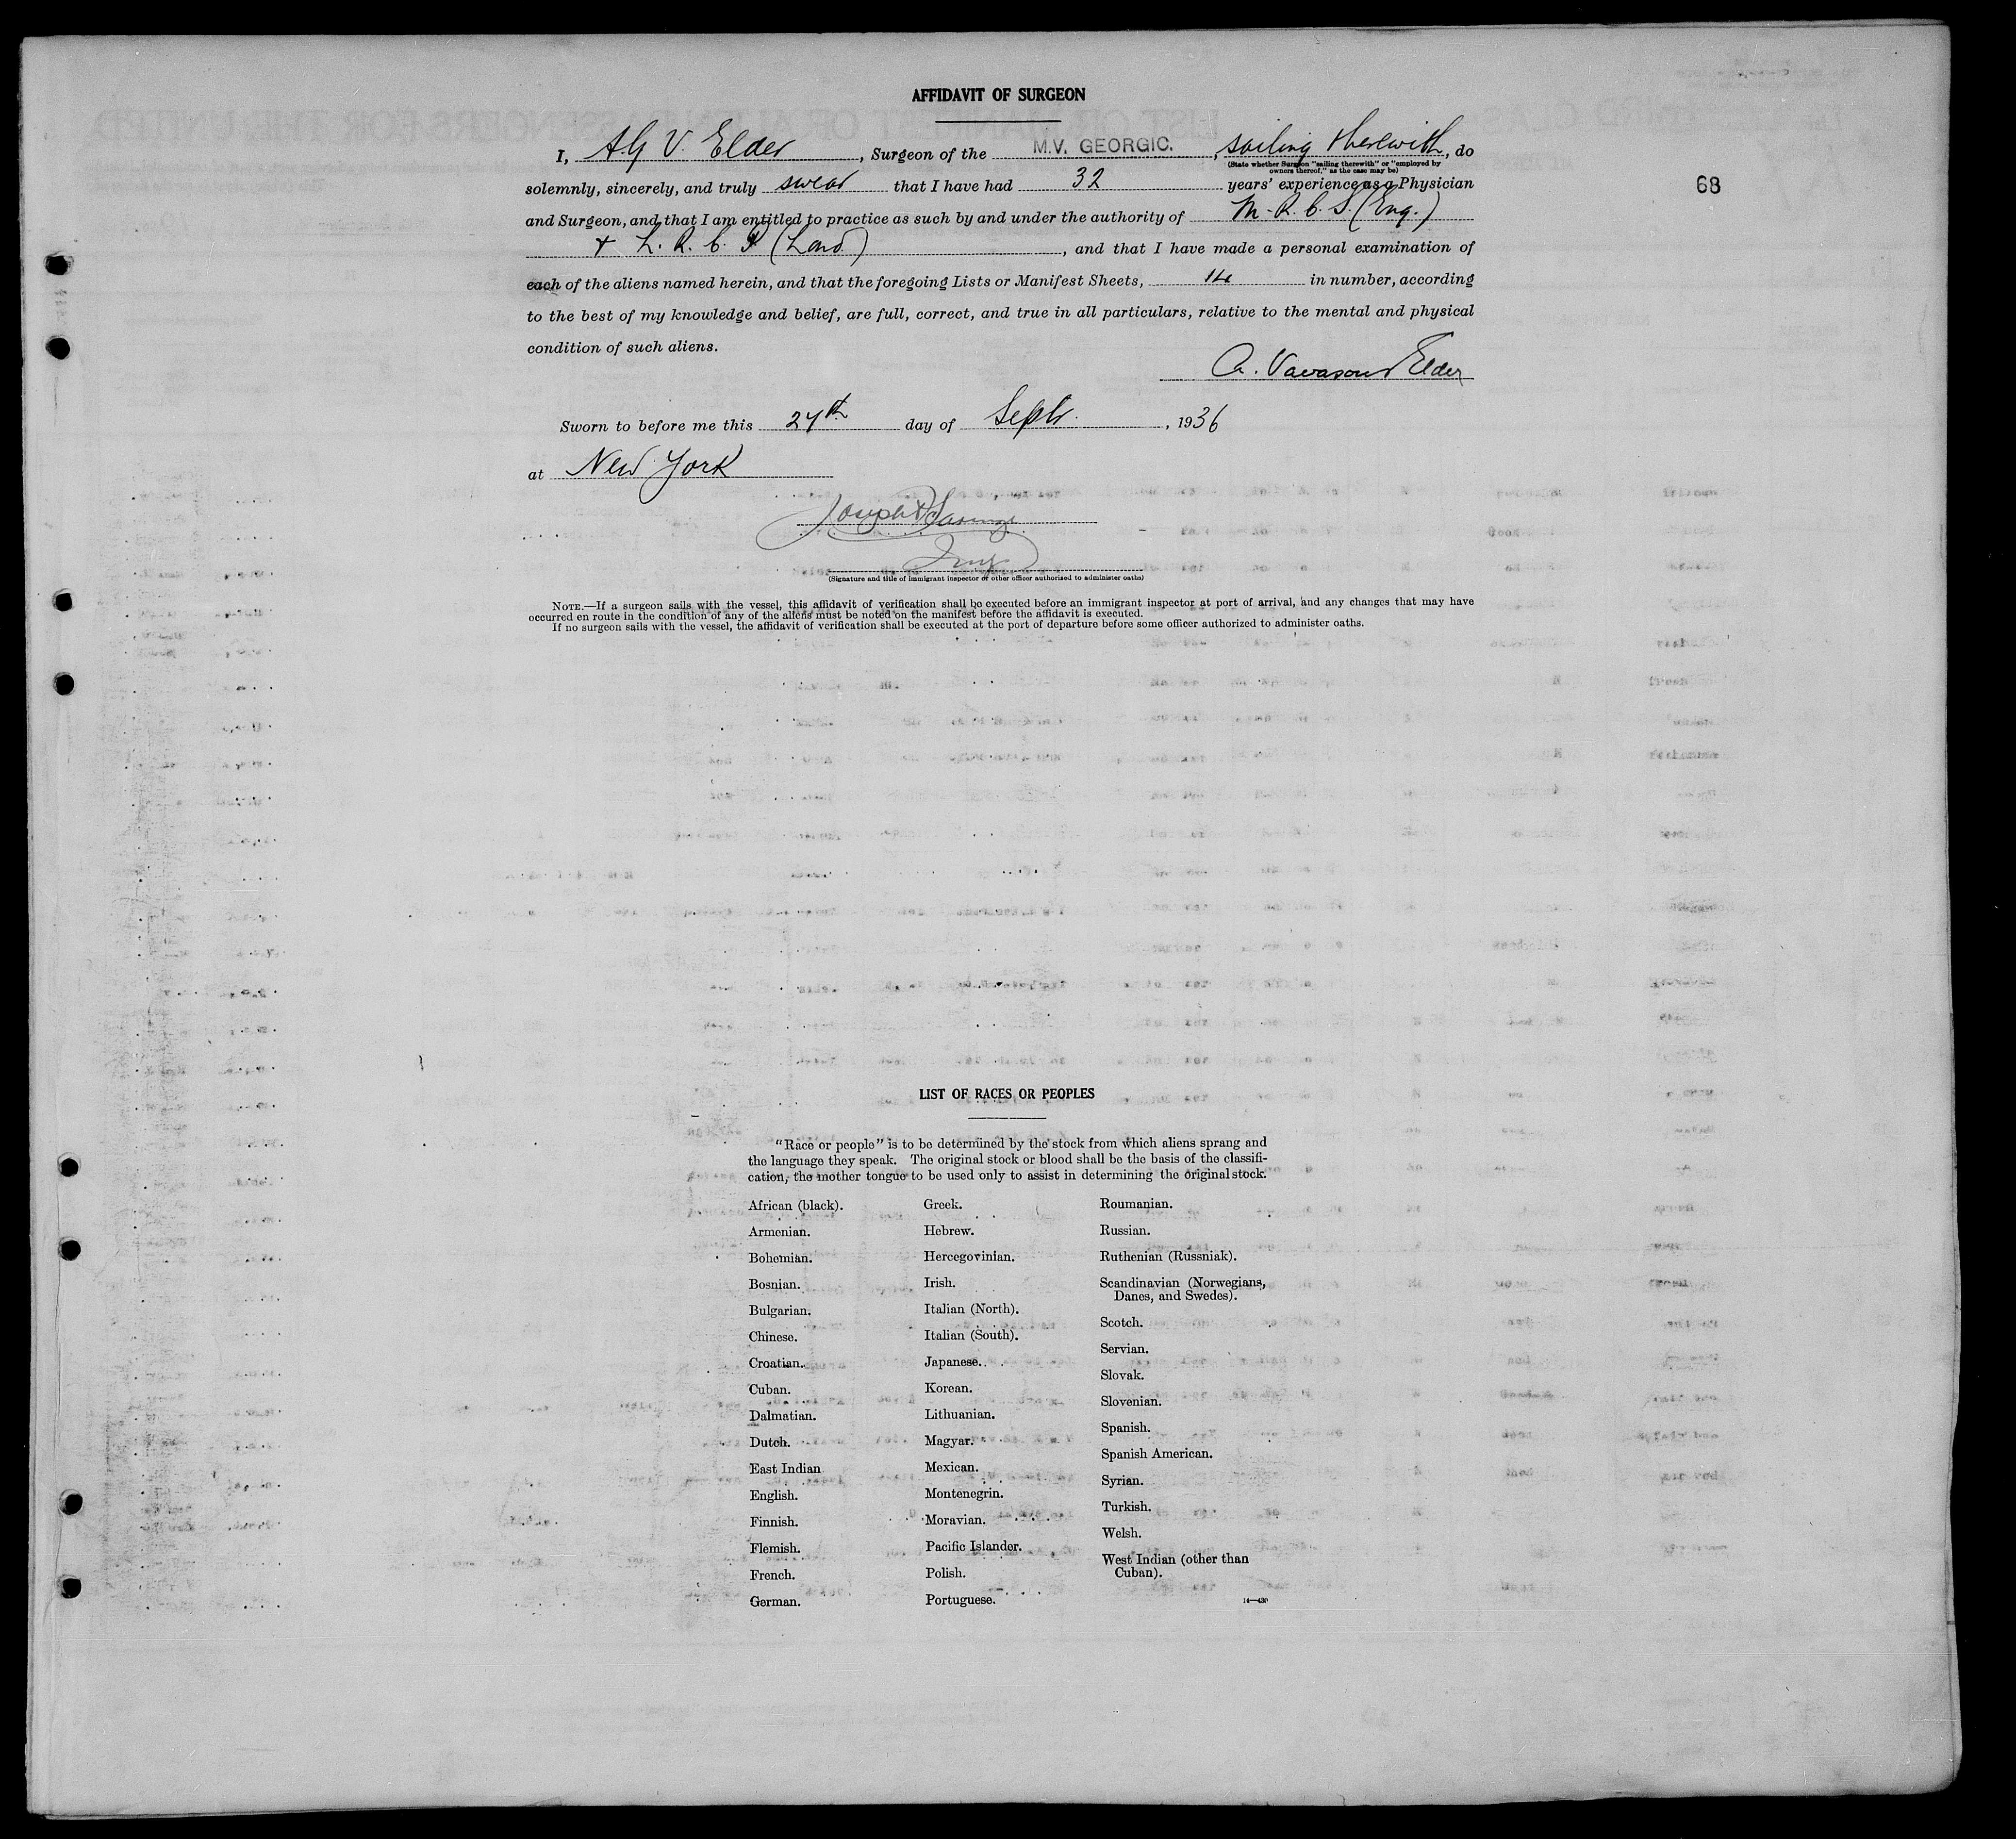 AFFIDAVIT OF SURGEON
I, A.G V. Elder, Surgeon of the M.V. GEORGIC., sailing therewith, do
(State whether Surgeon "sailing therewith" or "employed by
owners thereof," as the case may be)
solemnly, sincerely, and truly swear that I have had 32 years' experience as a Physician
68
and Surgeon, and that I am entitled to practice as such by and under the authority of M.R.C.S. (Eng.)
+ L.R.C.P (Lond.), and that I have made a personal examination of
each of the aliens named herein, and that the foregoing Lists or Manifest Sheets, 14 in number, according
to the best of my knowledge and belief, are full, correct, and true in all particulars, relative to the mental and physical
condition of such aliens.
A. Vavasour Elder
Sworn to before me this 27th day of Septr., 1936
at New York
Joseph
(Signature and title of immigrant inspector or other officer authorized to administer oaths)
NOTE.—If a surgeon sails with the vessel, this affidavit of verification shall be executed before an immigrant inspector at port of arrival, and any changes that may have
occurred en route in the condition of any of the aliens must be noted on the manifest before the affidavit is executed.
If no surgeon sails with the vessel, the affidavit of verification shall be executed at the port of departure before some officer authorized to administer oaths.
LIST OF RACES OR PEOPLES
"Race or people" is to be determined by the stock from which aliens sprang and
the language they speak. The original stock or blood shall be the basis of the classifi-
cation, the mother tongue to be used only to assist in determining the original stock.
African (black).
Armenian.
Bohemian.
Bosnian.
Bulgarian.
Chinese.
Croatian.
Cuban.
Dalmatian.
Dutch.
East Indian
English.
Finnish.
Flemish.
French.
German.
Greek.
Hebrew.
Hercegovinian.
Irish.
Italian (North).
Italian (South).
Japanese.
Korean.
Lithuanian.
Magyar.
Mexican.
Montenegrin.
Moravian.
Pacific Islander.
Polish.
Portuguese.
Roumanian.
Russian.
Ruthenian (Russniak).
Scandinavian (Norwegians,
Danes, and Swedes).
Scotch.
Servian.
Slovak.
Slovenian.
Spanish.
Spanish American.
Syrian.
Turkish.
Welsh.
West Indian (other than
Cuban).
14—430